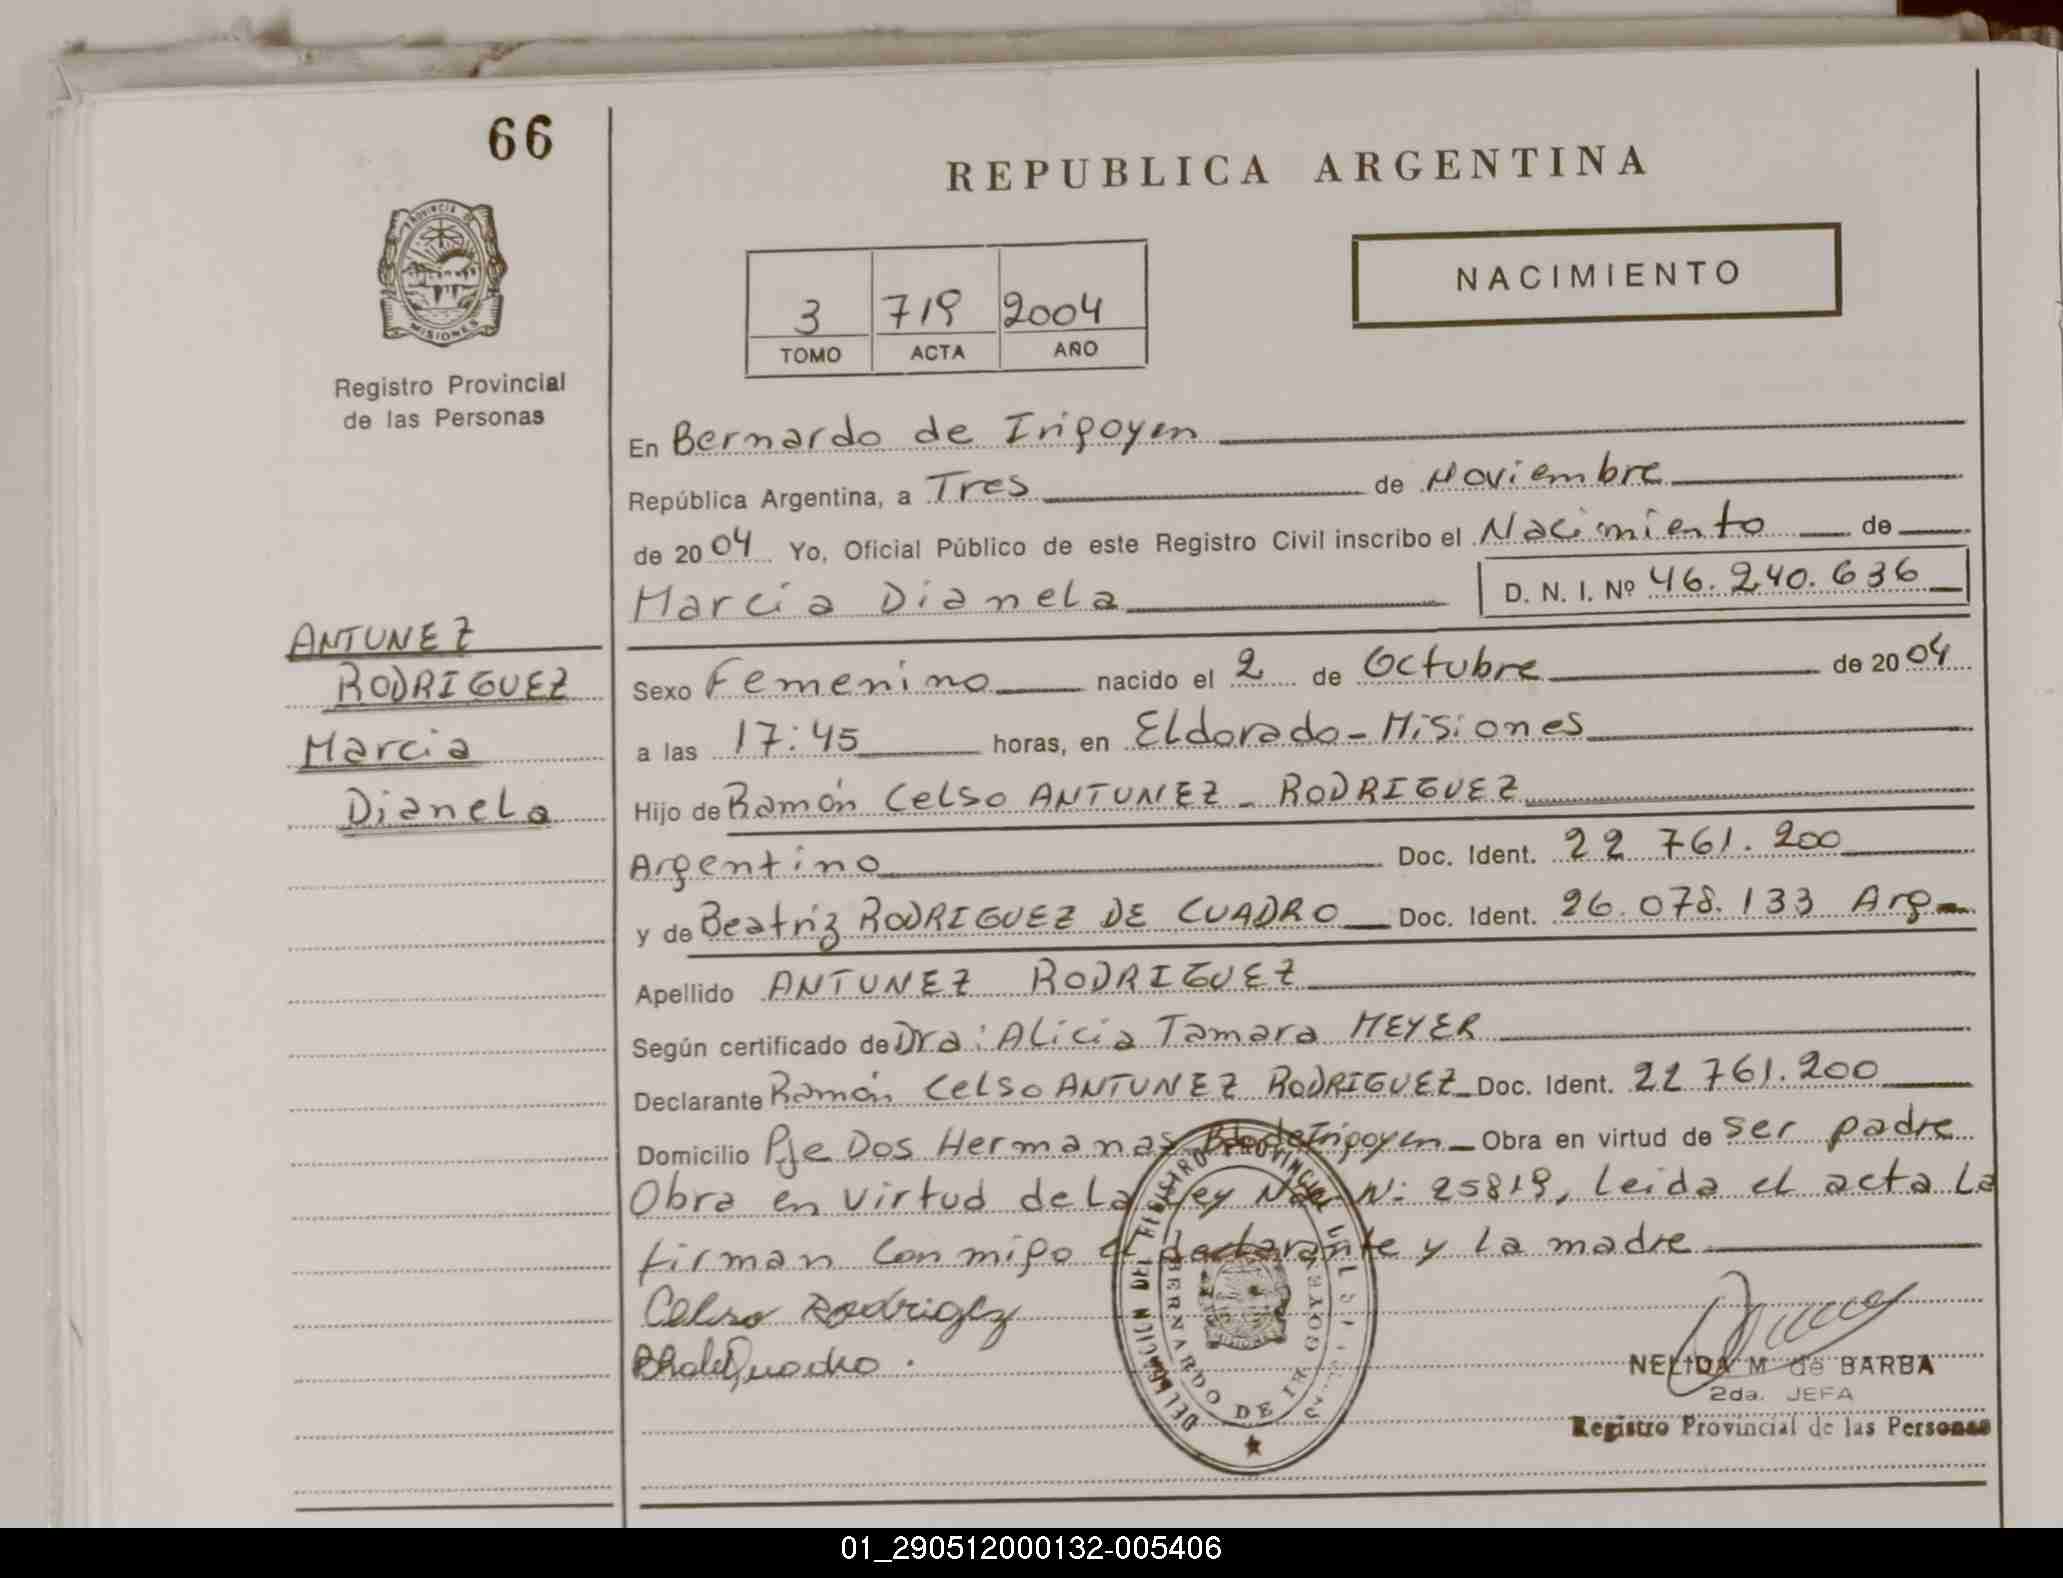 66
REPUBLICA ARGENTINA
PROVINCIA DE
MISIONES
NACIMIENTO
3 719 2004
TOMO ACTA AÑO
Registro Provincial
de las Personas
En Bernardo de Irigoyen
República Argentina, a Tres de Noviembre
de 2004 Yo, Oficial Público de este Registro Civil inscribo el Nacimiento de
Marcia Dianela D. N. I. Nº 46.240.636
ANTUNEZ
RODRIGUEZ
Marcia
Dianela
Sexo Femenino nacido el 2 de Octubre de 2004
a las 17:45 horas, en Eldorado - Misiones
Hijo de Ramón Celso ANTUNEZ - RODRIGUEZ
Argentino Doc. Ident. 22 761.200
y de Beatriz RODRIGUEZ DE CUADRO Doc. Ident. 26.078.133 Arg
Apellido ANTUNEZ RODRIGUEZ
Según certificado de Dra: Alicia Tamara MEYER
Declarante Ramón Celso ANTUNEZ RODRIGUEZ Doc. Ident. 22 761.200
Domicilio Pje Dos Hermanas Bdo de Irigoyen Obra en virtud de ser padre
Obra en virtud de la Ley Nac N: 25819, leida el acta la
firman conmigo el declarante y la madre
Celso Rodrigez
NELIDA M de BARBA
2da. JEFA
Registro Provincial de las Personas
BERNARDO DE IRIGOYEN
01_290512000132-005406